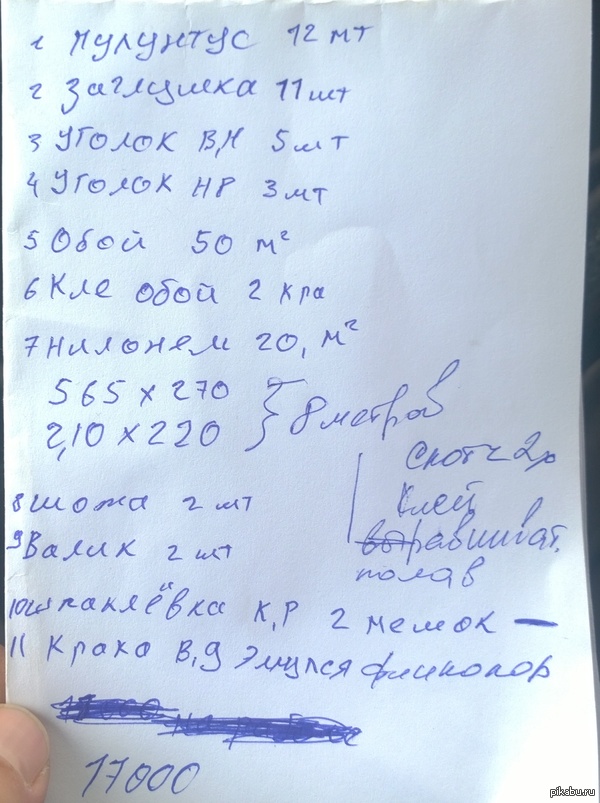 1 Пулунтус 12 мт
2 Заглушка 11 шт
3 Уголок В,Н 5 шт
4 Уголок НР 3 шт
5 Обой 50 м²
6 Кле обой 2 кра
7 Нилонем 20, м²
565 х 270
2,10 х 220
8 метров
Скотч 2х
Клей
равниват.
полав
8 шожа 2 шт
9 Валик 2 шт
10 шпаклёвка К,Р 2 мемок —
11 Крака В,д Эмулся финколор
17000
pikabu.ru